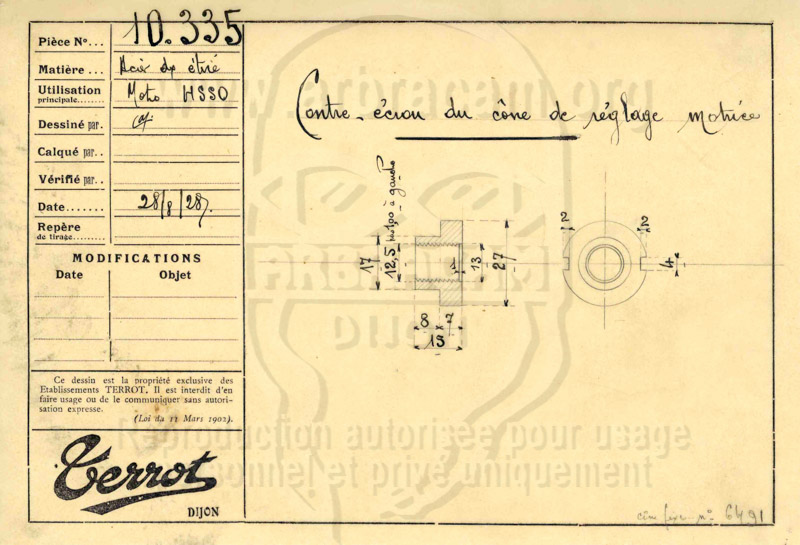 Pièce N°... 10.335
Matière... Acier étiré
Utilisation principale....... Moto HSSO
Dessiné par.
Calqué par..
Vérifié par..
Date....... 28/8/28.
Repère
de tirage.........
MODIFICATIONS
Date Objet
Ce dessin est la propriété exclusive des
Etablissements TERROT. Il est interdit d'en
faire usage ou de le communiquer sans autori-
sation expresse.
(Loi du 11 Mars 1902).
Terrot
DIJON
www.arbracam.org
Contre-écrou du cône de réglage motrice
à gauche
17
12,5
13
27
8 7
15
2 2
4
ARBRACAM
DIJON
Reproduction autorisée pour usage
personnel et privé uniquement
n° 6491